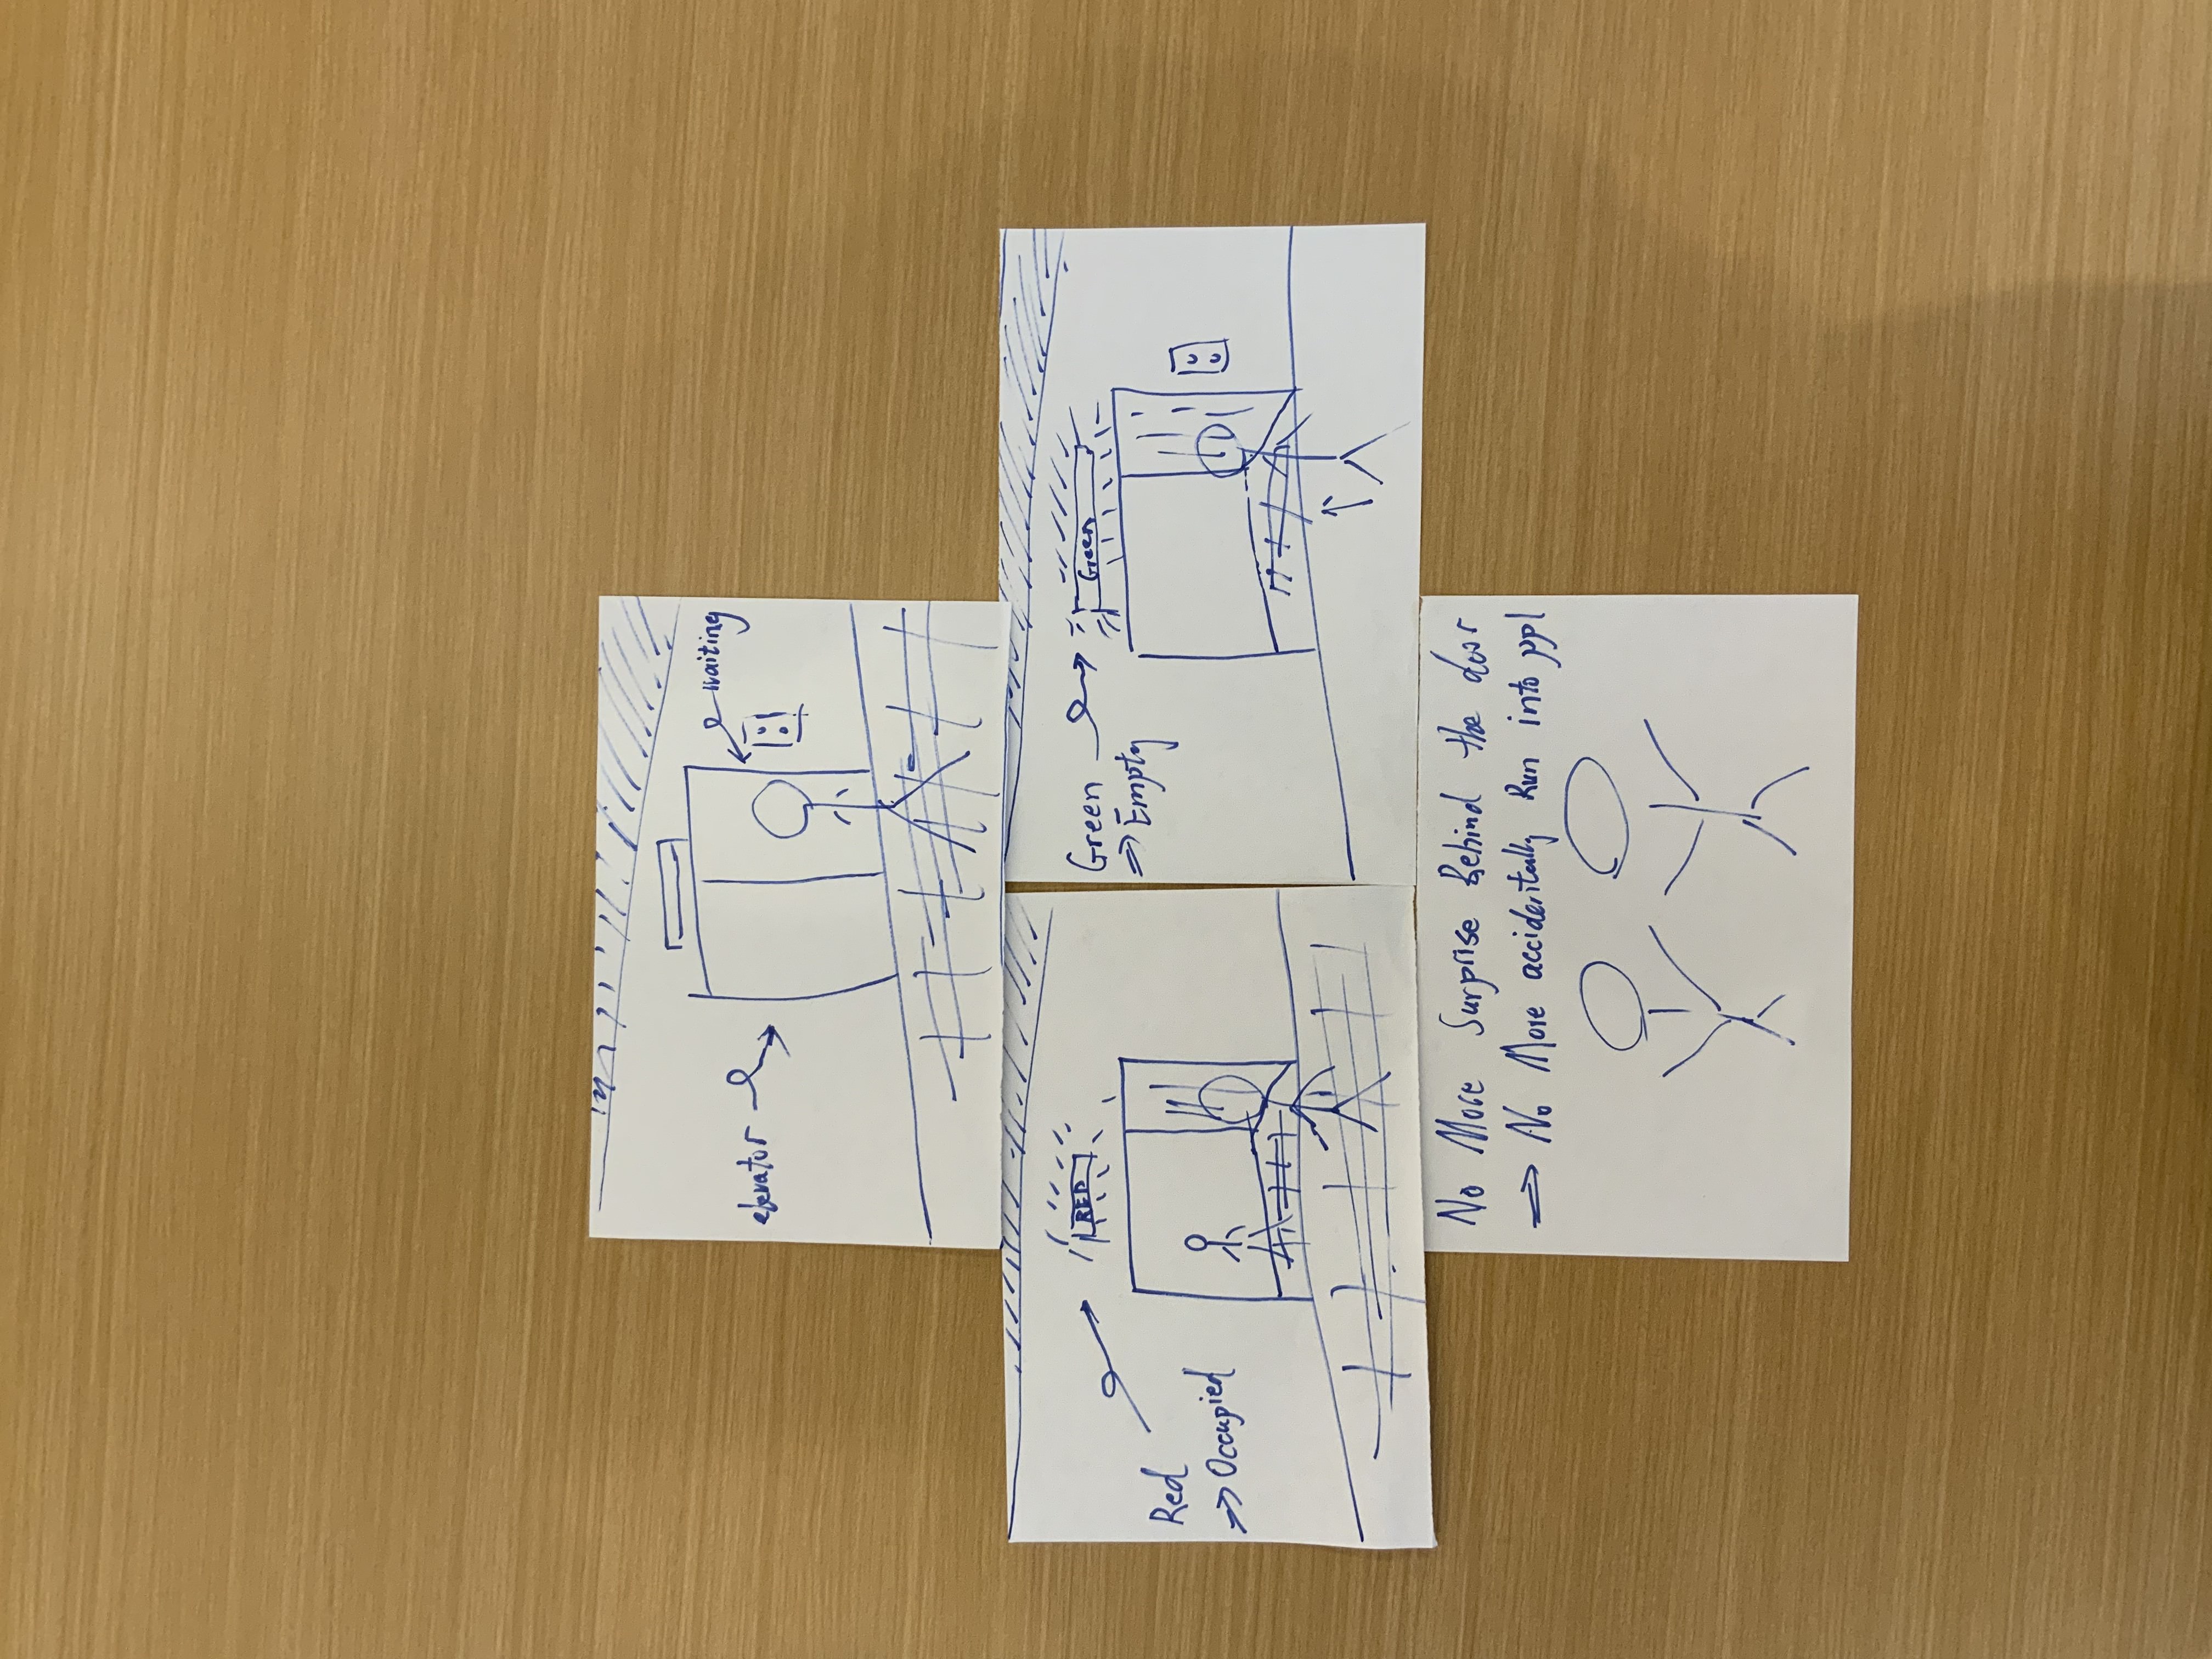 elevator
waiting
RED
Red
⇒ Occupied
Green
Green
⇒ Empty
No More Surprise Behind the door
⇒ No More accidentally Run into ppl